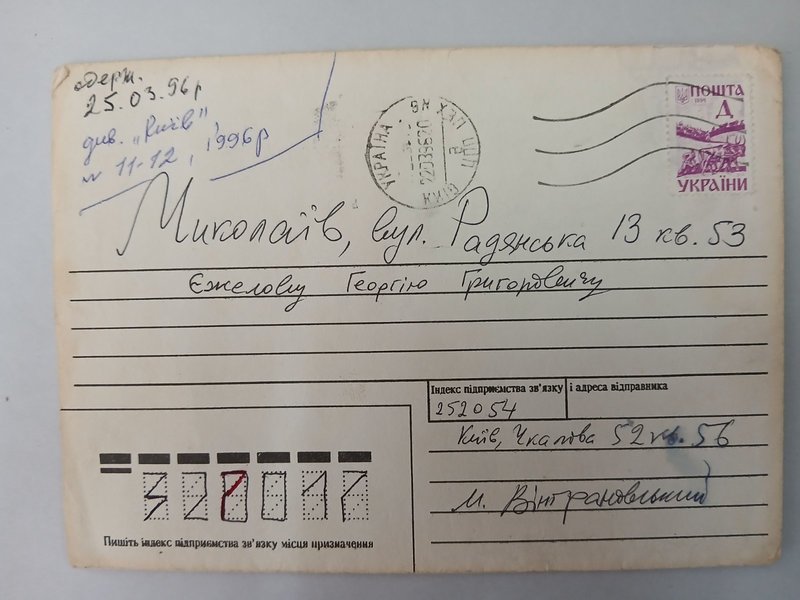 одерж.
25.03.96р
див. "Київ",
№ 11-12, 1996р
УКРАЇНА
КИЇВ
ПОШТА
Д
УКРАЇНИ
Миколаїв, вул. Радянська 13 кв. 53
Єжелову Георгію Григоровичу
Індекс підприємства зв'язку і адреса відправника
252054
Київ, Чкалова 52 кв. 56
М. Вінграновський
Пишіть індекс підприємства зв'язку місця призначення